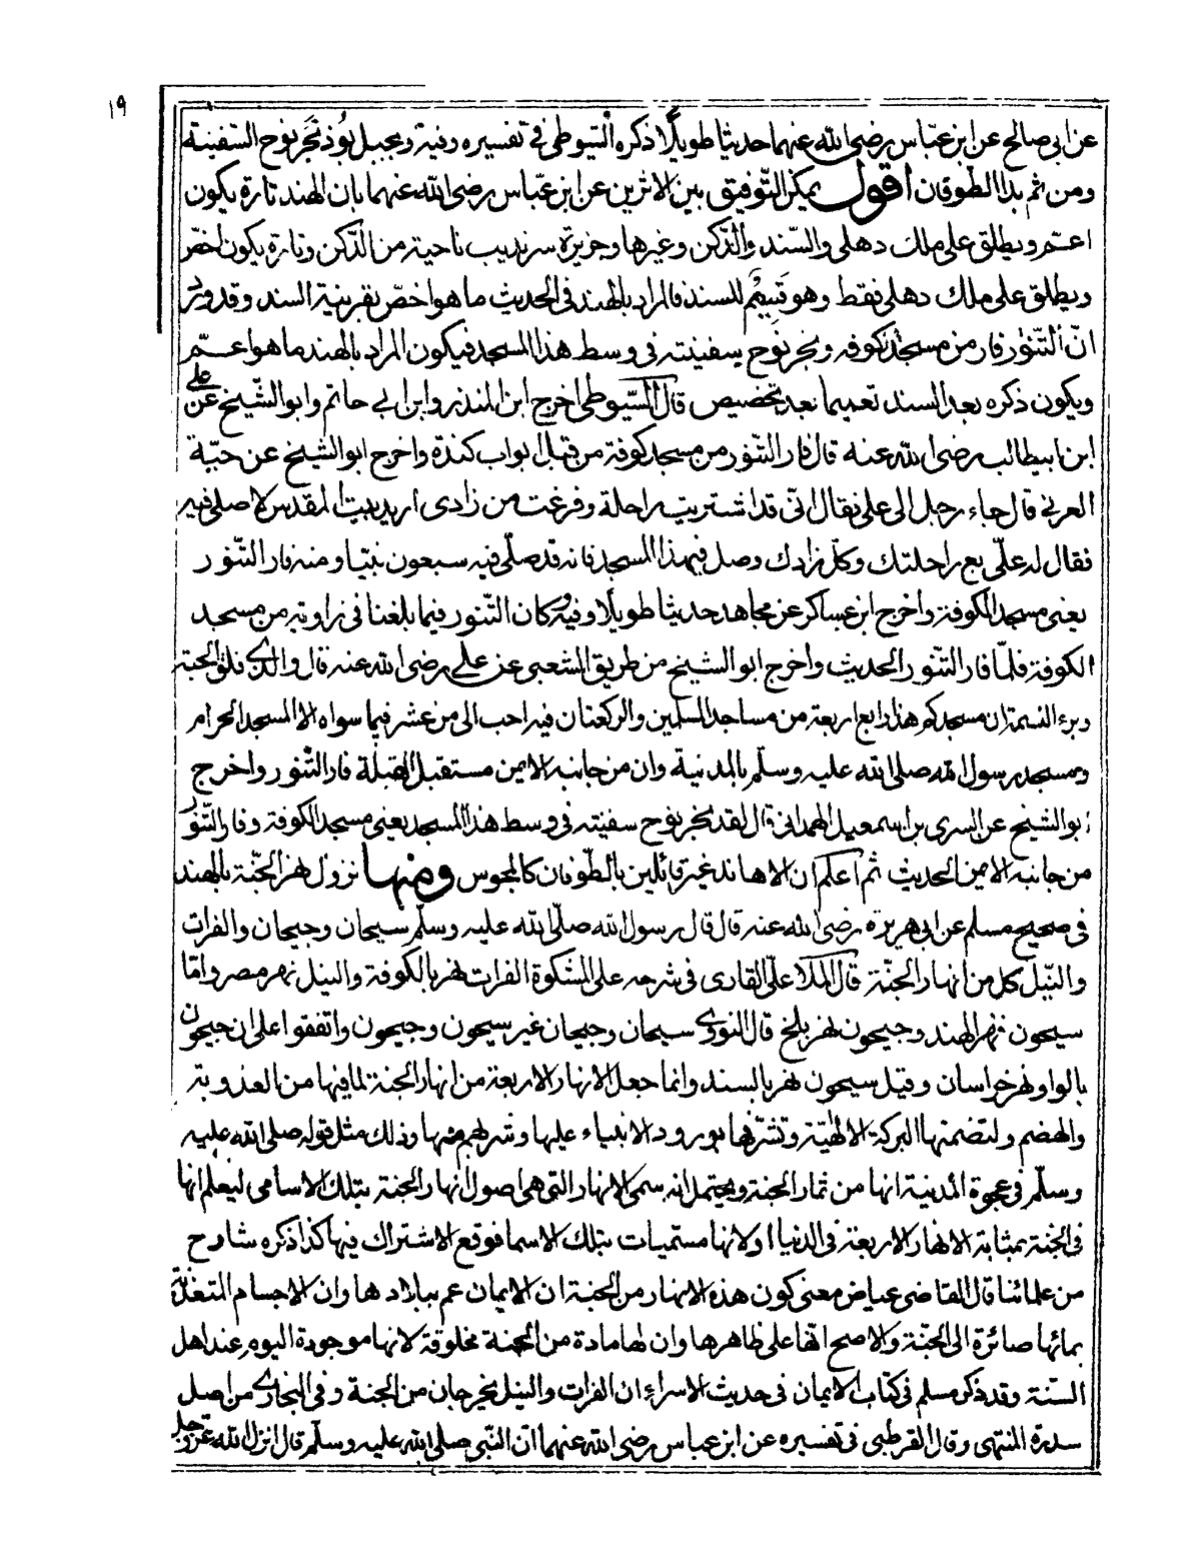 ١٩
عن ابي صالح عن ابن عبّاس رضي الله عنهما حديثا طويلًا ذكره السّيوطي في تفسيره وفيه وبجبل بُوذ نَجَر نوح السّفينة
ومن ثم بدا الطوفان اقول يمكن التّوفيق بين الاثرين عن ابن عبّاس رضي الله عنهما بان الهند تارة يكون
اعمّ ويطلق على ملك دهلي والسّند والدّكن وغيرها وجزيرة سرنديب ناحية من الدّكن وتارة يكون اخصّ
ويطلق على ملك دهلي فقط وهو قَسِيمٌ للسند فالمراد بالهند في الحديث ما هو اخصّ بقرينة السند وقد ورد
انّ التّنّور فار من مسجد كوفه ونجر نوح سفينته في وسط هذا المسجد فيكون المراد بالهند ما هو اعمّ
ويكون ذكره بعد السند تعميما بعد تخصيص قال السّيوطي اخرج ابن المنذر وابن ابي حاتم وابو الشّيخ عن علي
ابن ابيطالب رضي الله عنه قال فار التنّور من مسجد كوفة من قبل ابواب كندة واخرج ابو الشيخ عن حبّة
العرني قال جاء رجل الى علي فقال انّي قد اشتريت راحلة وفرغت من زادى اريد بيت المقدس لاصلى فيه
فقال له عليّ بع راحلتك وكل زادك وصل في هذا المسجد فانه قد صلّى فيه سبعون نبيّا ومنه فار التنّور
يعنى مسجد الكوفة واخرج ابن عساكر عن مجاهد حديثا طويلًا وفيه وكان التّنور فيما بلغنا في زاوية من مسجد
الكوفة فلمّا فار التنّور الحديث واخرج ابو الشيخ من طريق الشعبي عن علي رضي الله عنه قال والذي فلق الحبة
وبرء النسمة ان مسجدكم هذا رابع اربعة من مساجد المسلمين والركعتان فيه احب الى من عشر فيما سواه الا المسجد الحرام
ومسجد رسول الله صلى الله عليه وسلّم بالمدنية وان من جانبه الايمن مستقبل القبلة فار التنّور واخرج
ابو الشيخ عن السري بن اسمعيل الهمداني قال لقد نجر نوح سفينته في وسط هذا المسجد يعنى مسجد الكوفة وفار التنّور
من جانبه الايمن الحديث ثم اعلم ان الاهاند غير قائلين بالطّوفان كالمجوس ومنها نزول نهر الجنّة بالهند
في صحيح مسلم عن ابي هريرة رضي الله عنه قال قال رسول الله صلّى الله عليه وسلّم سيحان وجيحان والفرات
والنّيل كل من انهار الجنّة قال الملا علي القارى في شرحه على المشكوة الفرات نهر بالكوفة والنيل نهر مصر وامّا
سيحون نهر الهند وجيحون نهر بلخ قال النووي سيحان وجيحان غير سيحون وجيحون واتفقوا على ان جيحون
بالواو نهر خراسان وقيل سيحون نهر بالسند وانما جعل الانهار الاربعة من انهار الجنة لما فيها من العذوبة
والهضم ولتضمنها البركة الالهيّة وتشرّفها بورود الانبياء عليها وشربهم منها وذلك مثل قوله صلى الله عليه
وسلّم في عجوة المدنية انها من ثمار الجنة ويحتمل انه سمى الانهار التي هي اصول انهار الجنة بتلك الاسامى ليعلم انها
في الجنة بمثابة الانهار الاربعة في الدنيا او لانها مسمّيات بتلك الاسما فوقع الاشتراك فيها كذا ذكره شارح
من علمائنا قال القاضي عياض معنى كون هذه الانهار من الجنة ان الايمان عم ببلادها وان الاجسام المتغذّية
بمائها صائرة الى الجنّة والاصح انّها على ظاهرها وان لها مادة من الجنة مخلوقة لانها موجودة اليوم عند اهل
السّنة وقد ذكر مسلم في كتاب الايمان في حديث الاسراء ان الفرات والنيل يخرجان من الجنة وفي البخاري من اصل
سدرة المنتهى وقال القرطبي في تفسيره عن ابن عباس رضي الله عنهما انّ النّبي صلى الله عليه وسلّم قال انزل الله عزّ وجل